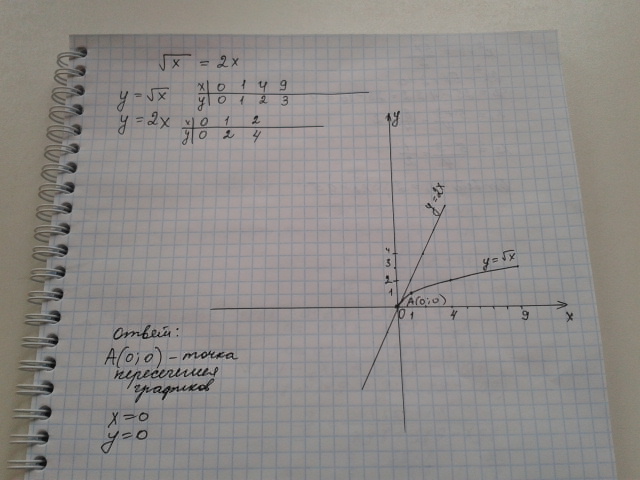 √x = 2x
y = √x
x | 0 1 4 9
y | 0 1 2 3
y = 2x
x | 0 1 2
y | 0 2 4
y
y=2x
4
3
2
1
y=√x
A(0;0)
0 1 4 9 x
Ответ:
A(0;0) – точка
пересечения
графиков
x=0
y=0